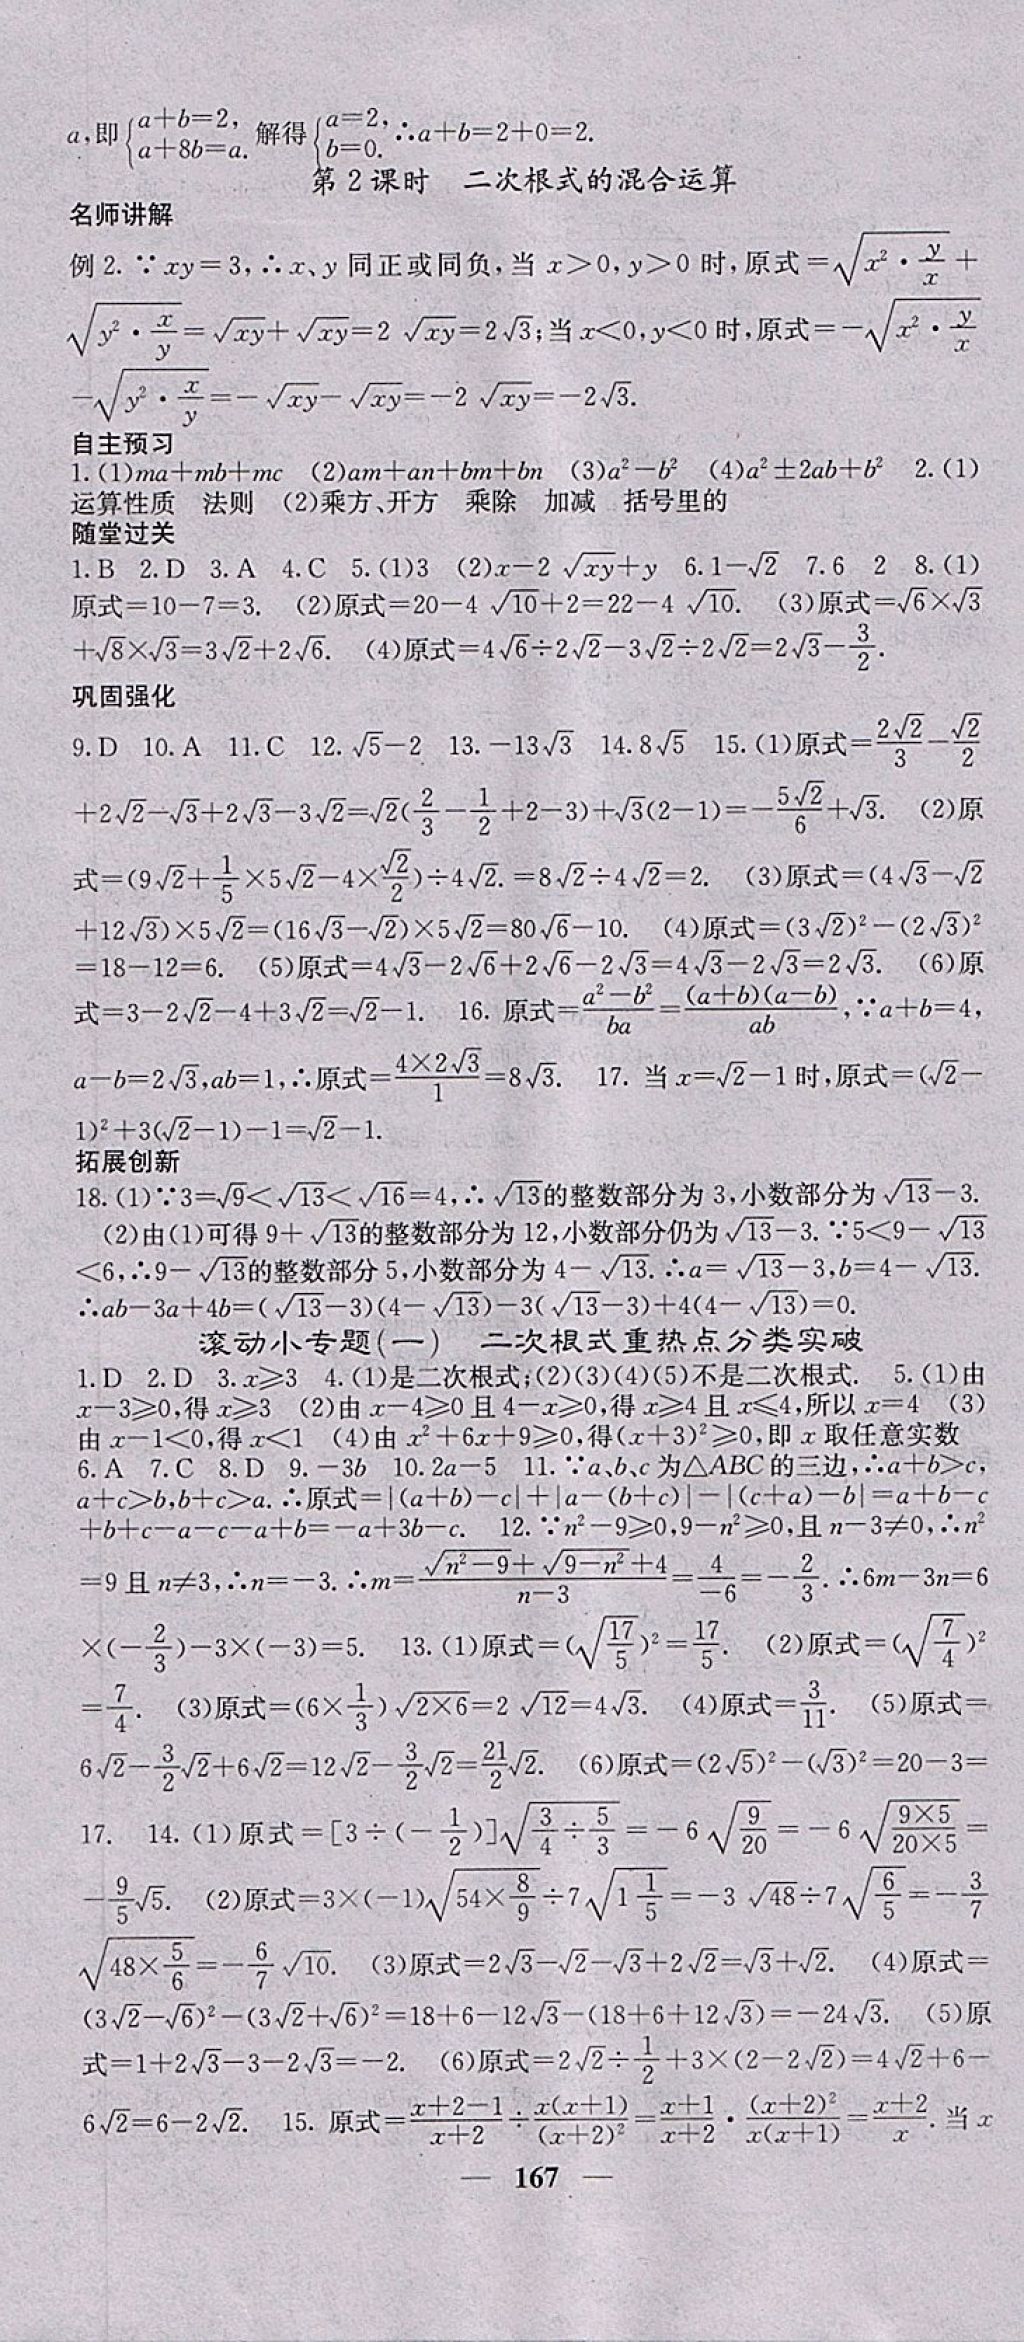 a,即{a+b=2, a+8b=a. 解得{a=2, b=0. ∴a+b=2+0=2.
第2课时 二次根式的混合运算
名师讲解
例2.∵xy=3,∴x、y同正或同负,当x>0,y>0时,原式=√(x²·y/x)+
√(y²·x/y)=√xy+√xy=2√xy=2√3;当x<0,y<0时,原式=-√(x²·y/x)
-√(y²·x/y)=-√xy-√xy=-2√xy=-2√3.
自主预习
1.(1)ma+mb+mc (2)am+an+bm+bn (3)a²-b² (4)a²±2ab+b² 2.(1)
运算性质 法则 (2)乘方、开方 乘除 加减 括号里的
随堂过关
1.B 2.D 3.A 4.C 5.(1)3 (2)x-2√xy+y 6.1-√2 7.6 2 8.(1)
原式=10-7=3. (2)原式=20-4√10+2=22-4√10. (3)原式=√6×√3
+√8×√3=3√2+2√6. (4)原式=4√6÷2√2-3√2÷2√2=2√3-3/2.
巩固强化
9.D 10.A 11.C 12.√5-2 13.-13√3 14.8√5 15.(1)原式=2√2/3-√2/2
+2√2-√3+2√3-3√2=√2(2/3-1/2+2-3)+√3(2-1)=-5√2/6+√3. (2)原
式=(9√2+1/5×5√2-4×√2/2)÷4√2.=8√2÷4√2=2. (3)原式=(4√3-√2
+12√3)×5√2=(16√3-√2)×5√2=80√6-10. (4)原式=(3√2)²-(2√3)²
=18-12=6. (5)原式=4√3-2√6+2√6-2√3=4√3-2√3=2√3. (6)原
式=3-2√2-4+3√2=√2-1. 16.原式=(a²-b²)/ba=(a+b)(a-b)/ab,∵a+b=4,
a-b=2√3,ab=1,∴原式=(4×2√3)/1=8√3. 17.当x=√2-1时,原式=(√2-
1)²+3(√2-1)-1=√2-1.
拓展创新
18.(1)∵3=√9<√13<√16=4,∴√13的整数部分为3,小数部分为√13-3.
(2)由(1)可得9+√13的整数部分为12,小数部分仍为√13-3.∵5<9-√13
<6,∴9-√13的整数部分5,小数部分为4-√13.∴a=√13-3,b=4-√13.
∴ab-3a+4b=(√13-3)(4-√13)-3(√13-3)+4(4-√13)=0.
滚动小专题(一) 二次根式重热点分类实破
1.D 2.D 3.x≥3 4.(1)是二次根式;(2)(3)(4)(5)不是二次根式. 5.(1)由
x-3≥0,得x≥3 (2)由x-4≥0且4-x≥0,得x≥4且x≤4,所以x=4 (3)
由x-1<0,得x<1 (4)由x²+6x+9≥0,得(x+3)²≥0,即x取任意实数
6.A 7.C 8.D 9.-3b 10.2a-5 11.∵a、b、c为△ABC的三边,∴a+b>c,
a+c>b,b+c>a.∴原式=|(a+b)-c|+|a-(b+c)|-|(c+a)-b|=a+b-c
+b+c-a-c-a+b=-a+3b-c. 12.∵n²-9≥0,9-n²≥0,且n-3≠0,∴n²
=9且n≠3,∴n=-3.∴m=(√(n²-9)+√(9-n²)+4)/(n-3)=4/-6=-2/3.∴6m-3n=6
×(-2/3)-3×(-3)=5. 13.(1)原式=(√(17/5))²=17/5. (2)原式=(√(7/4))²
=7/4. (3)原式=(6×1/3)√(2×6)=2√12=4√3. (4)原式=3/11. (5)原式=
6√2-3/2√2+6√2=12√2-3/2√2=21/2√2. (6)原式=(2√5)²-(√3)²=20-3=
17. 14.(1)原式=[3÷(-1/2)]√(3/4÷5/3)=-6√(9/20)=-6√((9×5)/(20×5))=
-9/5√5. (2)原式=3×(-1)√(54×8/9)÷7√(1 1/5)=-3√48÷7√(6/5)=-3/7
√(48×5/6)=-6/7√10. (3)原式=2√3-√2-√3+2√2=√3+√2. (4)原式=
(3√2-√6)²-(3√2+√6)²=18+6-12√3-(18+6+12√3)=-24√3. (5)原
式=1+2√3-3-2√3=-2. (6)原式=2√2÷1/2+3×(2-2√2)=4√2+6-
6√2=6-2√2. 15.原式=(x+2-1)/(x+2)÷x(x+1)/(x+2)²=(x+1)/(x+2)·(x+2)²/x(x+1)=(x+2)/x.当x
— 167 —